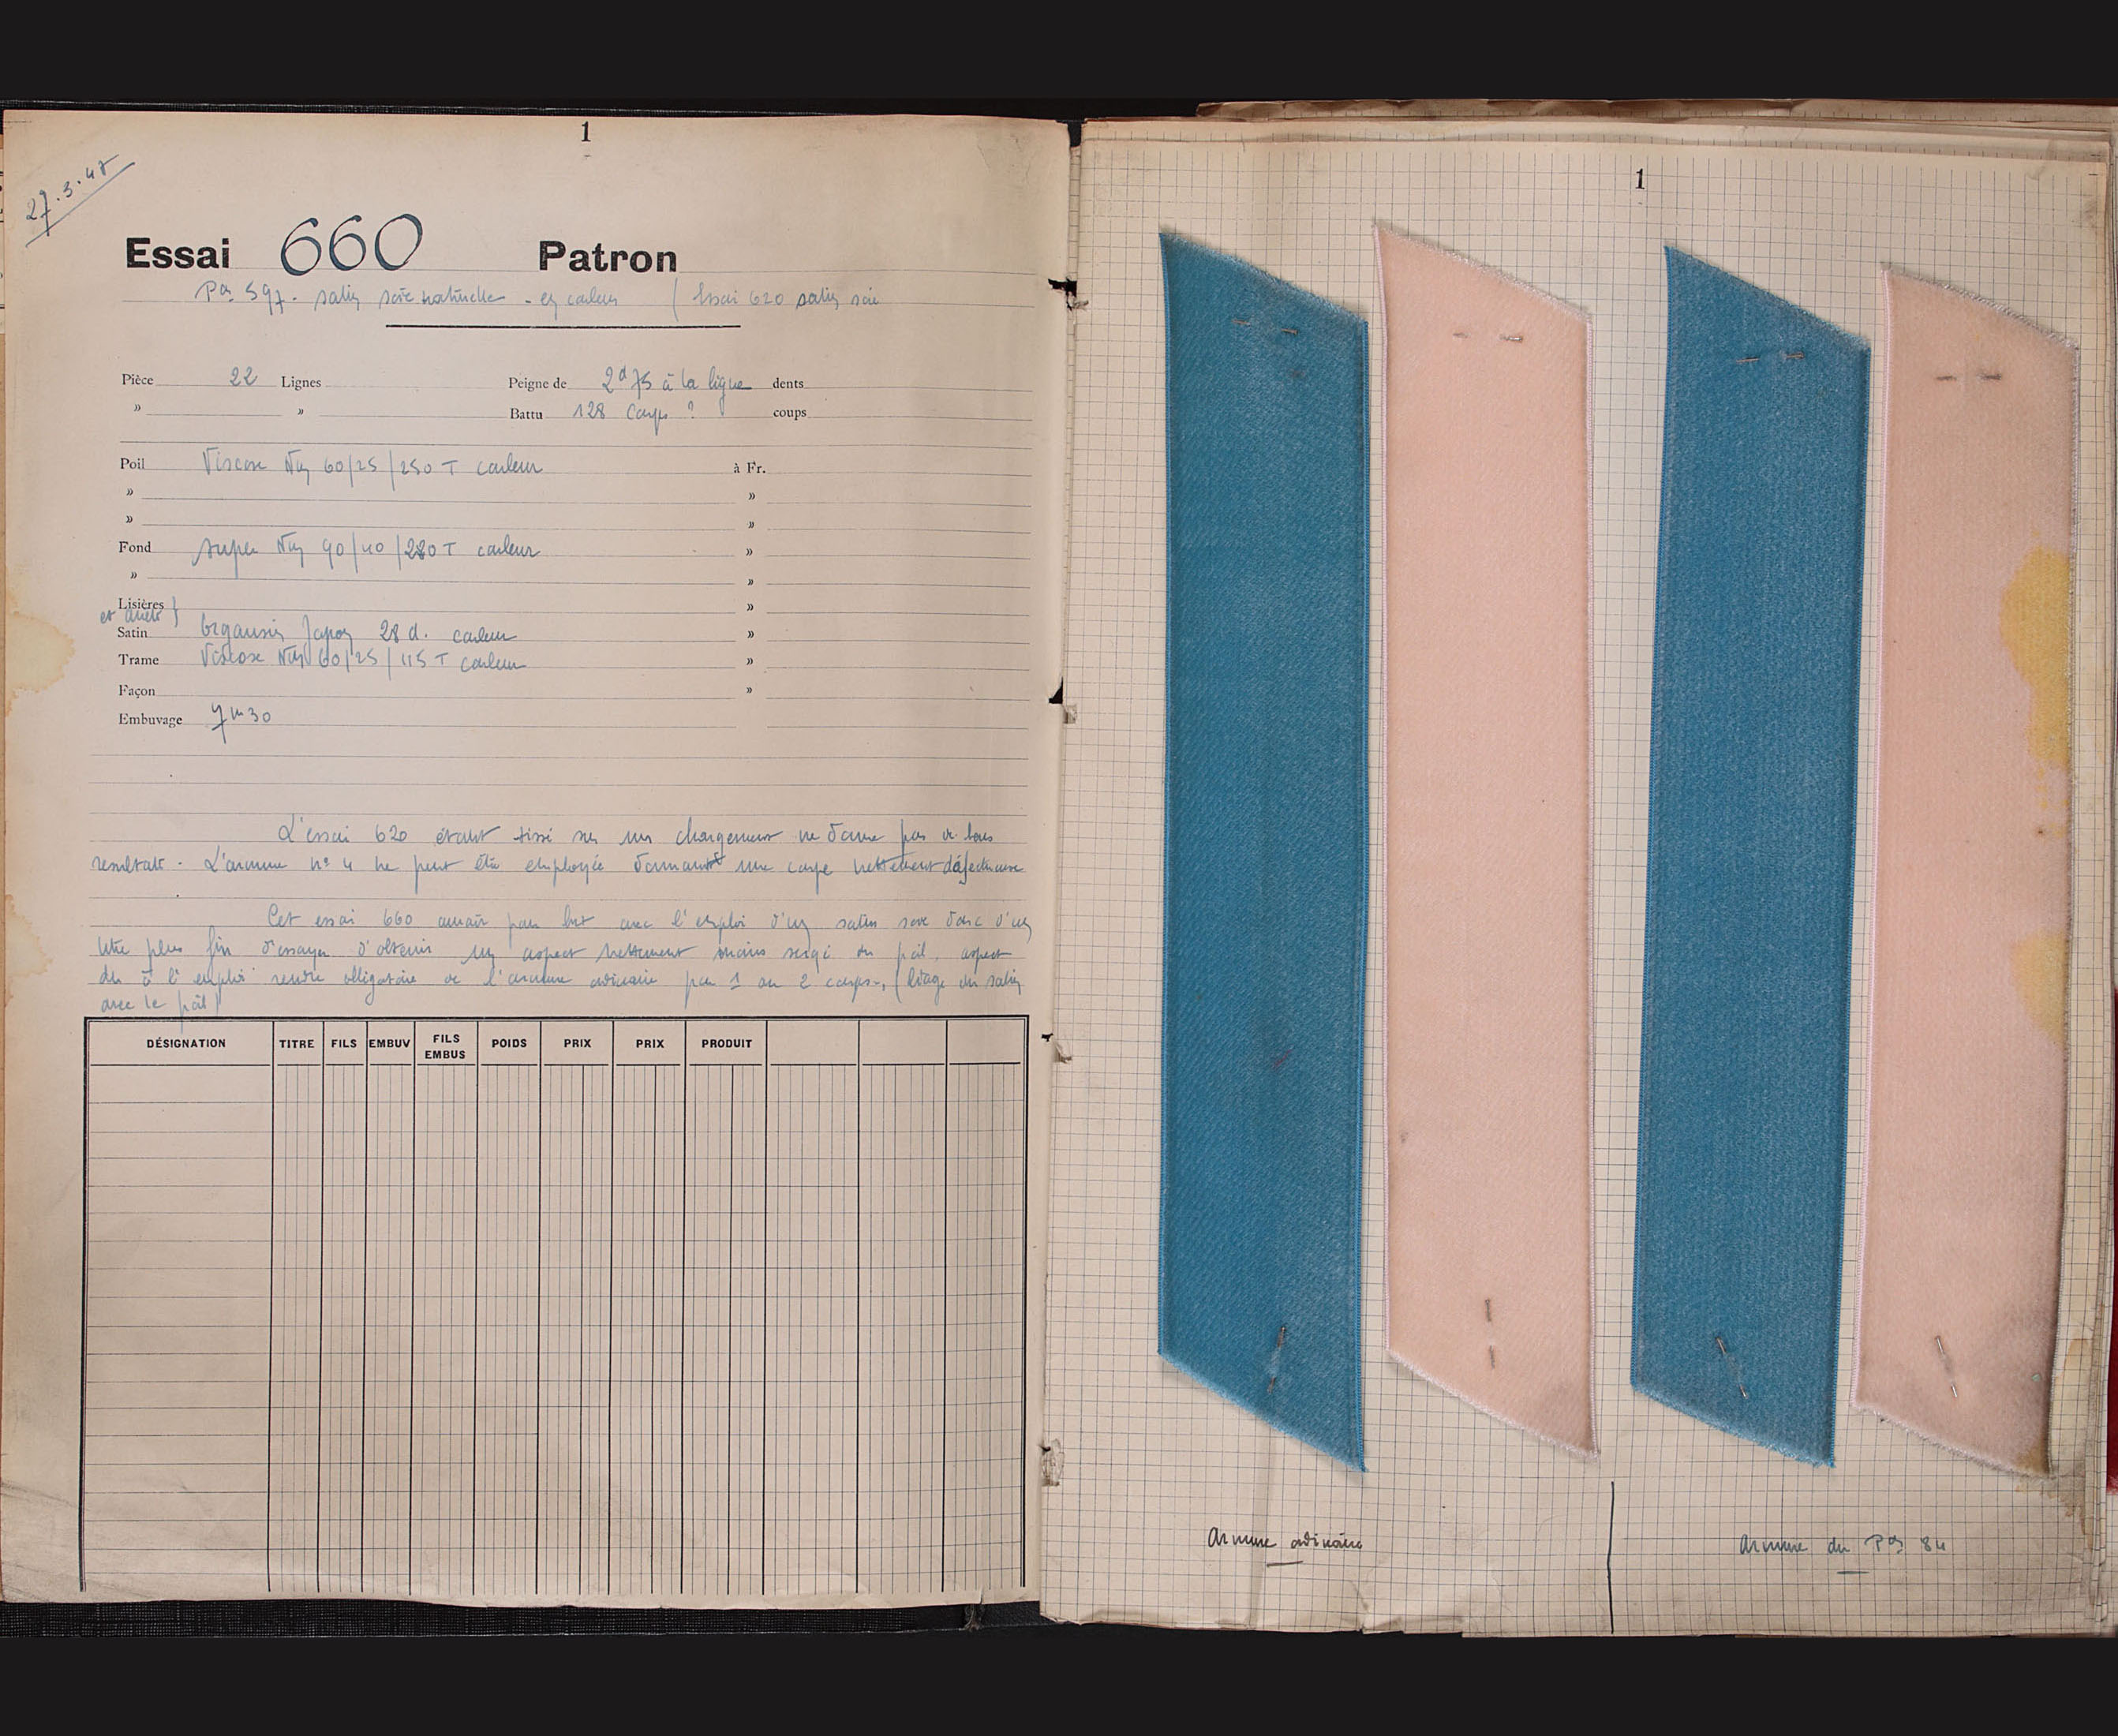 1
27.3.47
Essai 660 Patron
Pon 597. satin soie naturelle - en couleur (Essai 620 satin soie
Pièce 22 Lignes Peigne de 2d75 à la ligne dents
» » Battu 128 coups ? coups
Poil Viscose 60/25/250 T couleur à Fr.
» »
» »
Fond super 90/40/280 T couleur »
» »
Lisières »
et
Satin Organsin Japon 28 d. couleur »
Trame Viscose 60/25/115 T couleur »
Façon »
Embuvage 7m30
L'essai 620 étant tissé sur un chargement ne donne pas de bons
resultats - L'armure n° 4 ne peut être employée donnant une coupe nettement défectueuse
Cet essai 660 aurait pour but avec l'emploi d'un satin soie donc d'un
titre plus fin d'essayer d'obtenir un aspect nettement moins sergé du poil, aspect
du à l'emploi rendu obligatoire de l'armure ordinaire par 1 ou 2 corps, (liage du satin
avec le poil)
DÉSIGNATION TITRE FILS EMBUV FILS EMBUS POIDS PRIX PRIX PRODUIT
1
Armure ordinaire
Armure du Pon 84